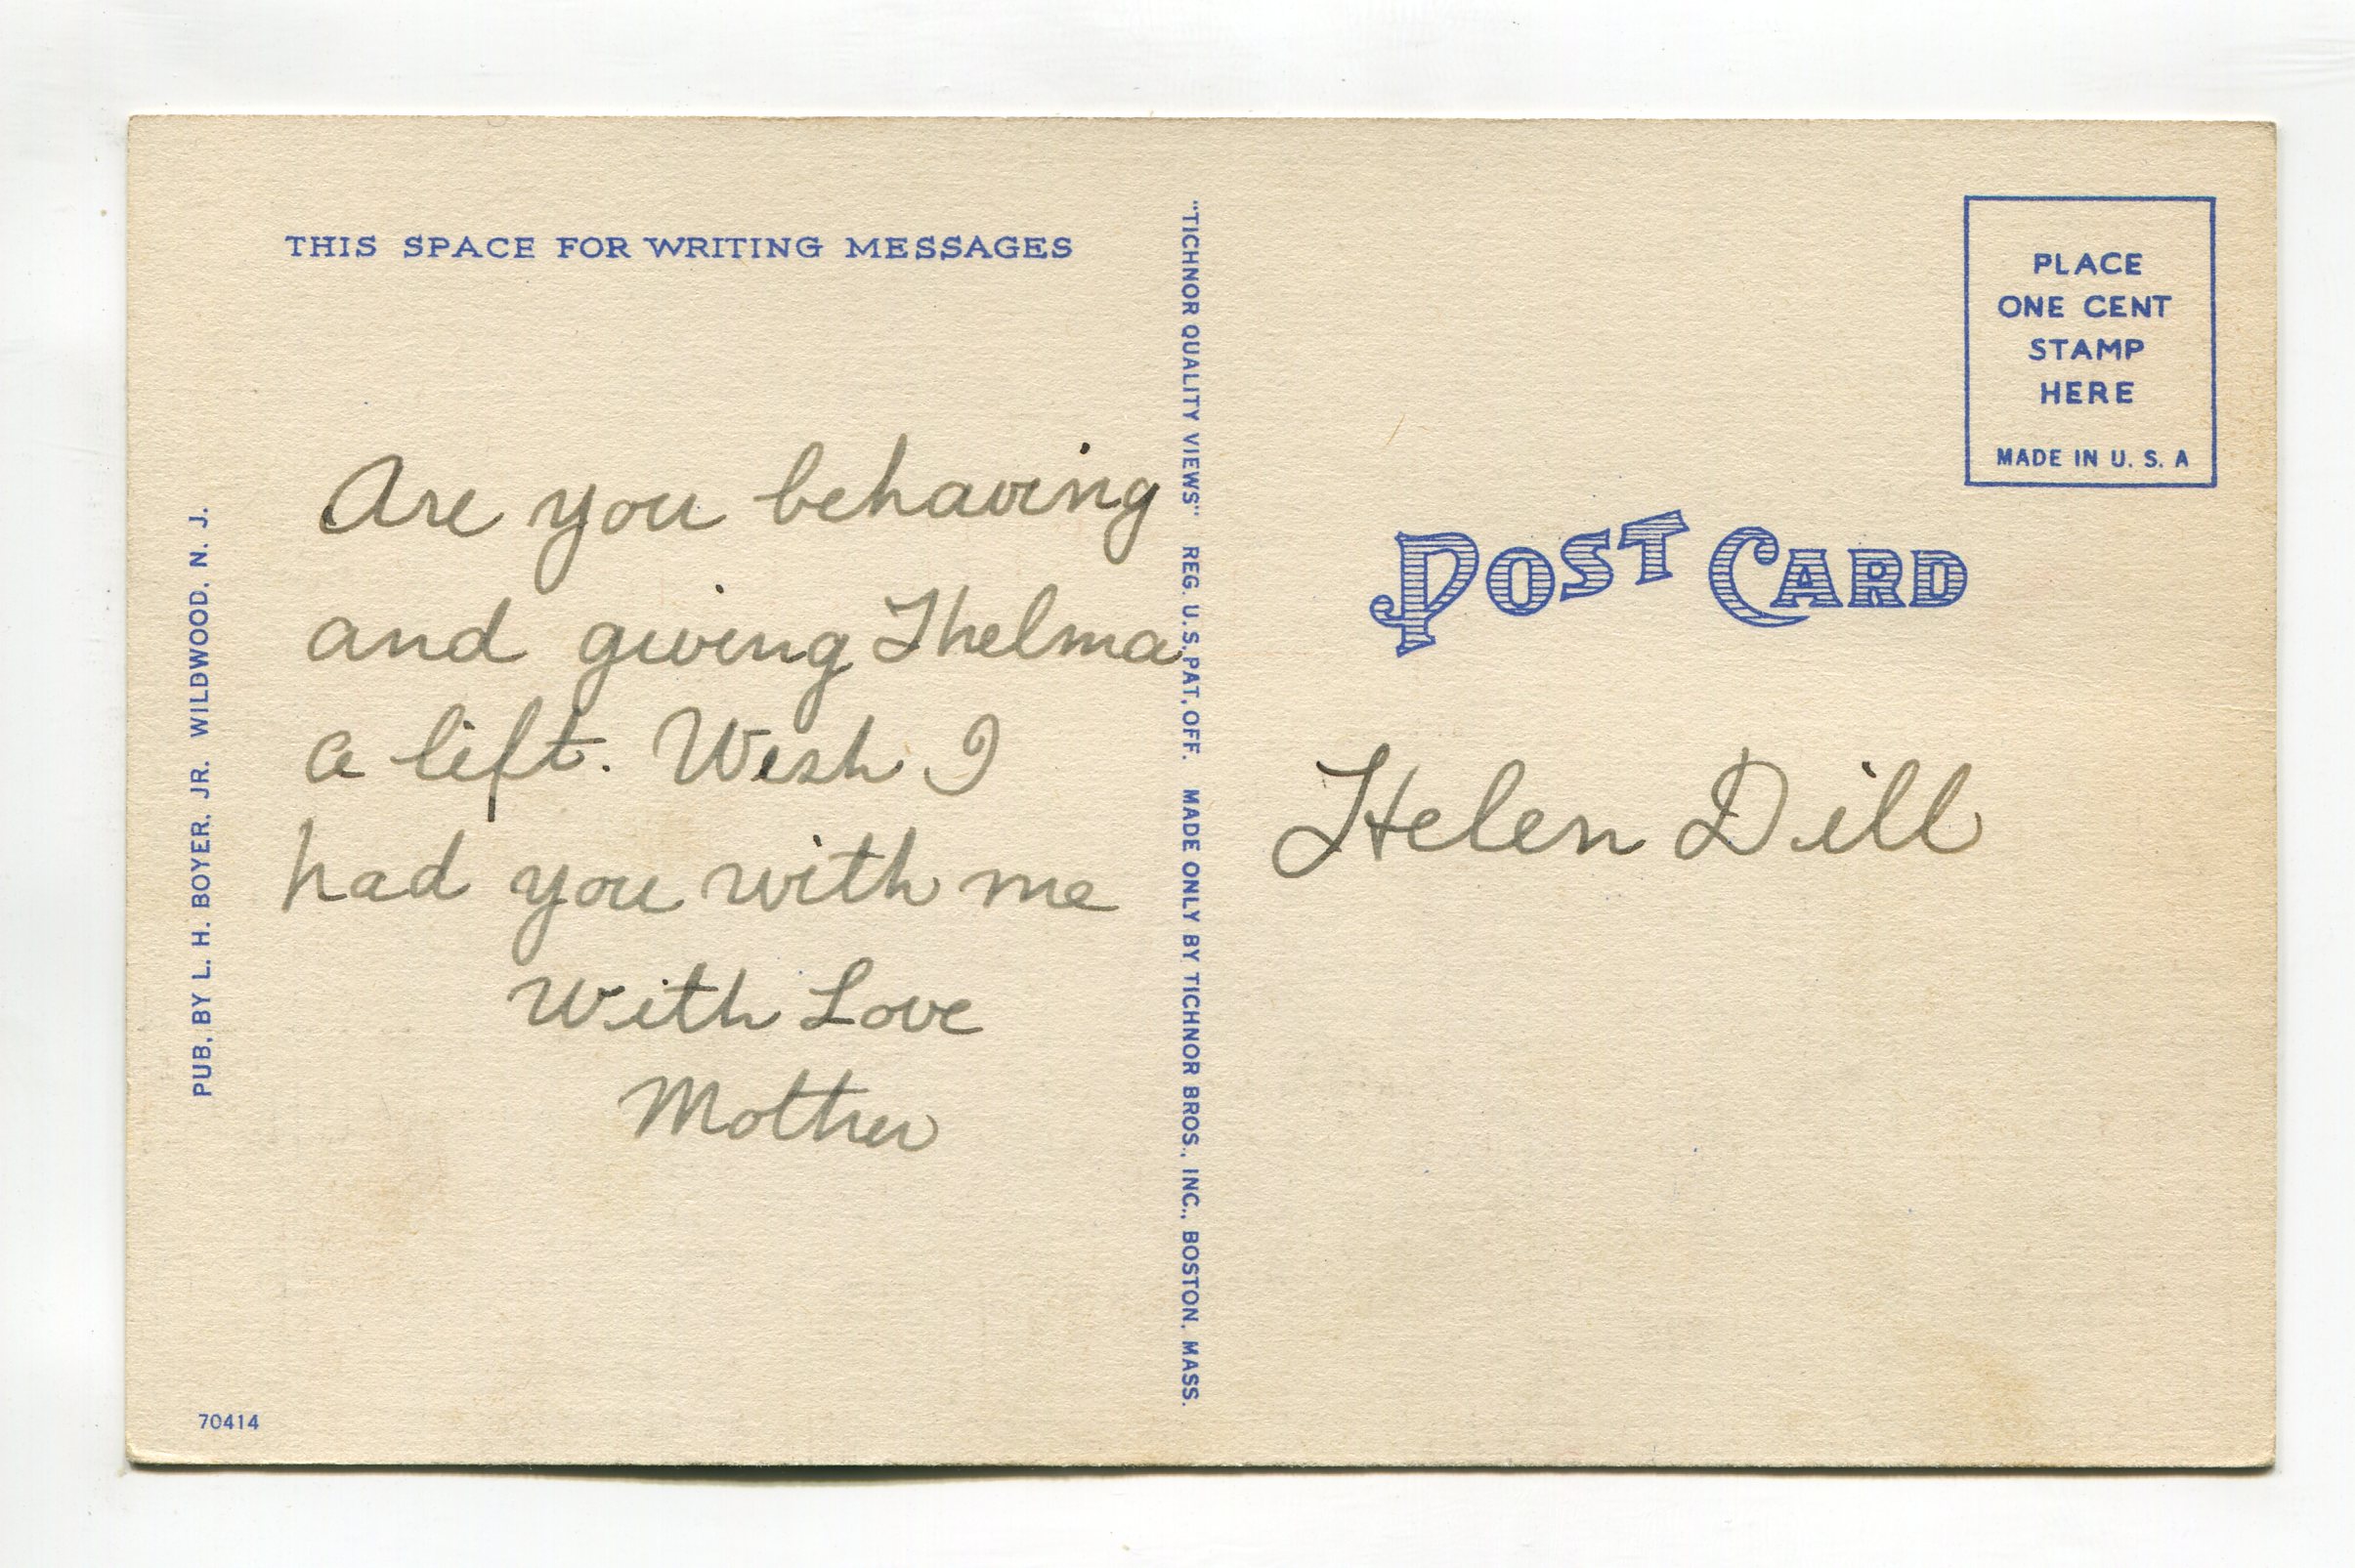 THIS SPACE FOR WRITING MESSAGES
Are you behaving
and giving Thelma
a lift. Wish I
had you with me
With Love
Mother
PUB. BY L. H. BOYER, JR. WILDWOOD, N. J.
70414
"TICHNOR QUALITY VIEWS" REG. U.S. PAT. OFF. MADE ONLY BY TICHNOR BROS., INC., BOSTON, MASS.
PLACE
ONE CENT
STAMP
HERE
MADE IN U. S. A
POST CARD
Helen Dill